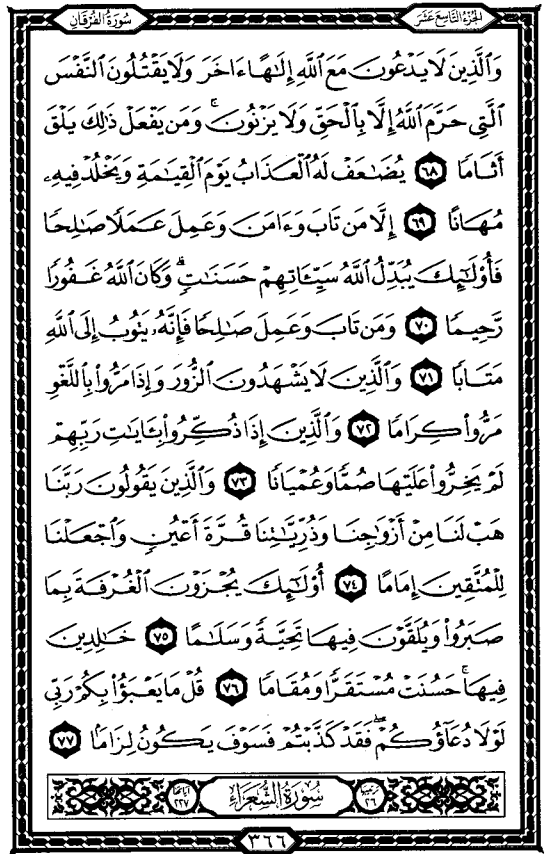 الجزء التاسع عشر
سورة الفرقان
وَٱلَّذِينَ لَا يَدْعُونَ مَعَ ٱللَّهِ إِلَٰهًا ءَاخَرَ وَلَا يَقْتُلُونَ ٱلنَّفْسَ
ٱلَّتِي حَرَّمَ ٱللَّهُ إِلَّا بِٱلْحَقِّ وَلَا يَزْنُونَۚ وَمَن يَفْعَلْ ذَٰلِكَ يَلْقَ
أَثَامًا ٦٨ يُضَٰعَفْ لَهُ ٱلْعَذَابُ يَوْمَ ٱلْقِيَٰمَةِ وَيَخْلُدْ فِيهِۦ
مُهَانًا ٦٩ إِلَّا مَن تَابَ وَءَامَنَ وَعَمِلَ عَمَلًا صَٰلِحًا
فَأُو۟لَٰٓئِكَ يُبَدِّلُ ٱللَّهُ سَيِّـَٔاتِهِمْ حَسَنَٰتٍۗ وَكَانَ ٱللَّهُ غَفُورًا
رَّحِيمًا ٧٠ وَمَن تَابَ وَعَمِلَ صَٰلِحًا فَإِنَّهُۥ يَتُوبُ إِلَى ٱللَّهِ
مَتَابًا ٧١ وَٱلَّذِينَ لَا يَشْهَدُونَ ٱلزُّورَ وَإِذَا مَرُّوا۟ بِٱللَّغْوِ
مَرُّوا۟ كِرَامًا ٧٢ وَٱلَّذِينَ إِذَا ذُكِّرُوا۟ بِـَٔايَٰتِ رَبِّهِمْ
لَمْ يَخِرُّوا۟ عَلَيْهَا صُمًّا وَعُمْيَانًا ٧٣ وَٱلَّذِينَ يَقُولُونَ رَبَّنَا
هَبْ لَنَا مِنْ أَزْوَٰجِنَا وَذُرِّيَّٰتِنَا قُرَّةَ أَعْيُنٍ وَٱجْعَلْنَا
لِلْمُتَّقِينَ إِمَامًا ٧٤ أُو۟لَٰٓئِكَ يُجْزَوْنَ ٱلْغُرْفَةَ بِمَا
صَبَرُوا۟ وَيُلَقَّوْنَ فِيهَا تَحِيَّةً وَسَلَٰمًا ٧٥ خَٰلِدِينَ
فِيهَاۚ حَسُنَتْ مُسْتَقَرًّا وَمُقَامًا ٧٦ قُلْ مَا يَعْبَؤُا۟ بِكُمْ رَبِّي
لَوْلَا دُعَآؤُكُمْۖ فَقَدْ كَذَّبْتُمْ فَسَوْفَ يَكُونُ لِزَامًۢا ٧٧
ترتيبها ٢٦ سورة الشعراء آياتها ٢٢٧
٣٦٦